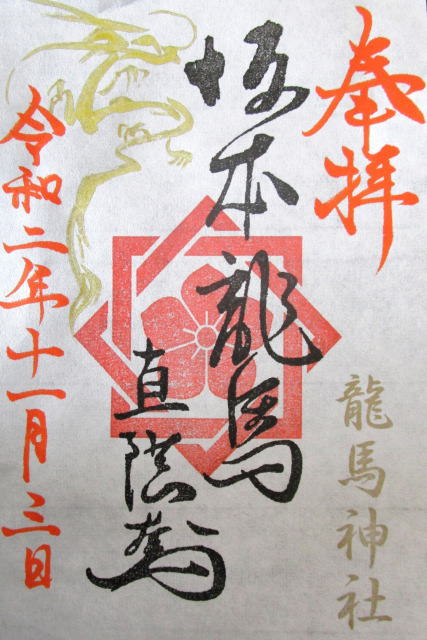 奉拝
龍馬神社
坂本龍馬
直陰
令和二年十一月三日